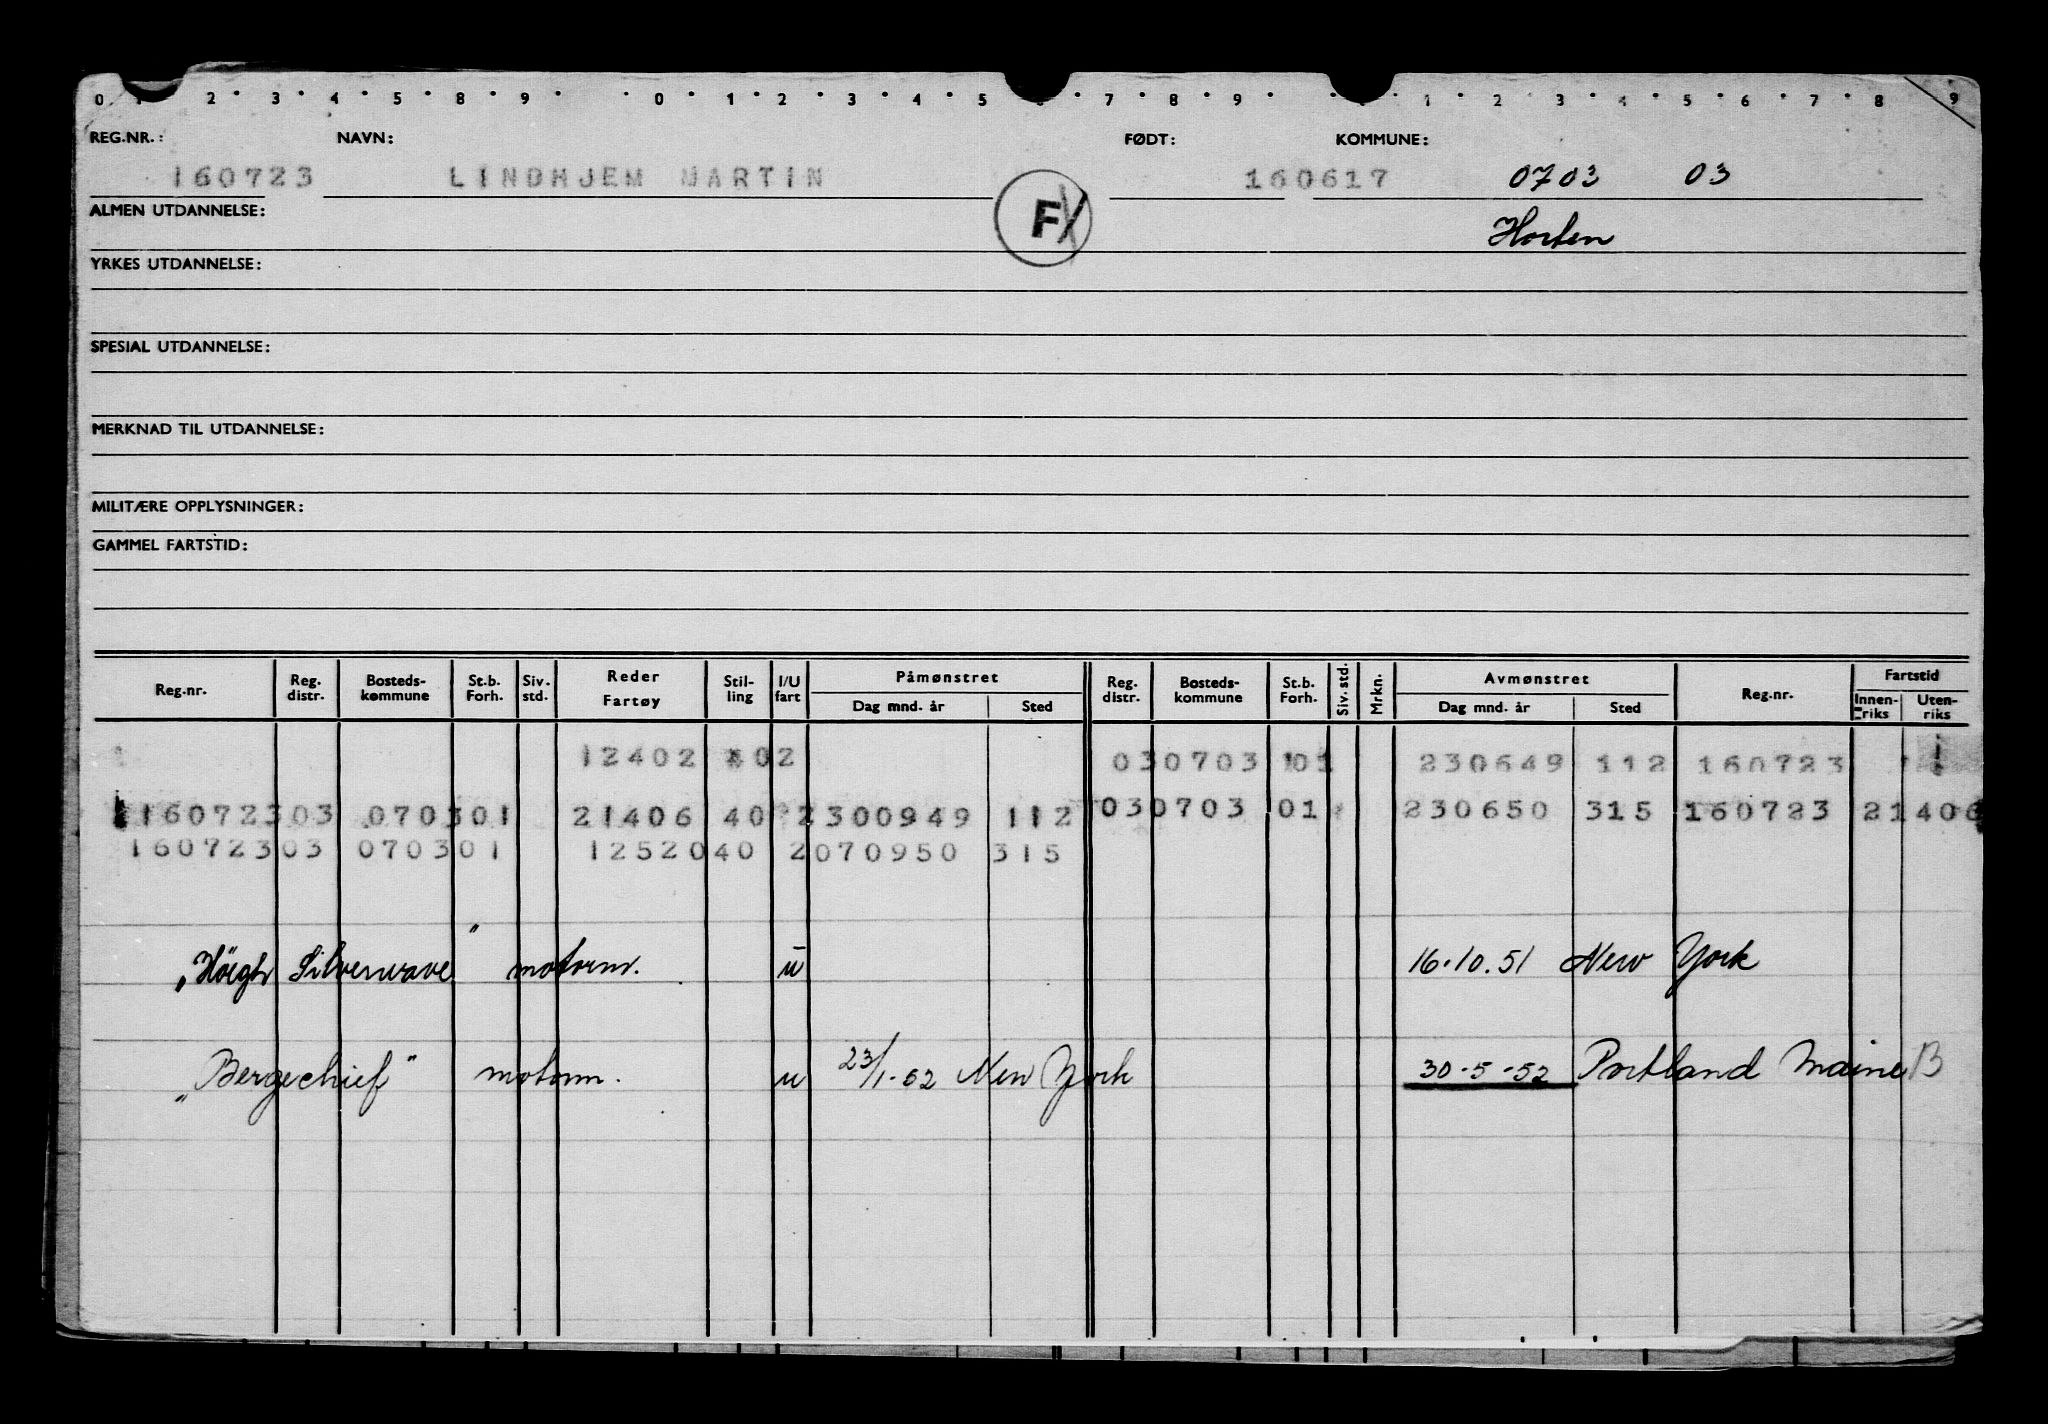 0 1 2 3 4 5 8 9 0 1 2 3 4 5 7 8 9 1 2 3 4 5 6 7 8 9
REG.NR.: NAVN: FØDT: KOMMUNE:
160723 LINDHJEM MARTIN 160617 0703 03
ALMEN UTDANNELSE: F Horten
YRKES UTDANNELSE:
SPESIAL UTDANNELSE:
MERKNAD TIL UTDANNELSE:
MILITÆRE OPPLYSNINGER:
GAMMEL FARTSTID:
Reg.nr. Reg. distr. Bosteds-kommune St.b. Forh. Siv. std. Reder Fartøy Stil-ling I/U fart Påmønstret Dag mnd. år Sted Reg. distr. Bosteds-kommune St.b. Forh. Siv. std. Mrkn. Avmønstret Dag mnd. år Sted Reg.nr. Fartstid Innen-riks Uten-riks
12402 02 030703 01 230649 112 160723
160723 03 070301 21406 40 2 300949 112 030703 01 230650 315 160723 21406
160723 03 070301 12520 40 2 070950 315
„Höegh Silverwave" motorm. u 16.10.51 New York
„Bergechief" motorm. u 23/1-52 New York 30-5-52 Portland Maine B